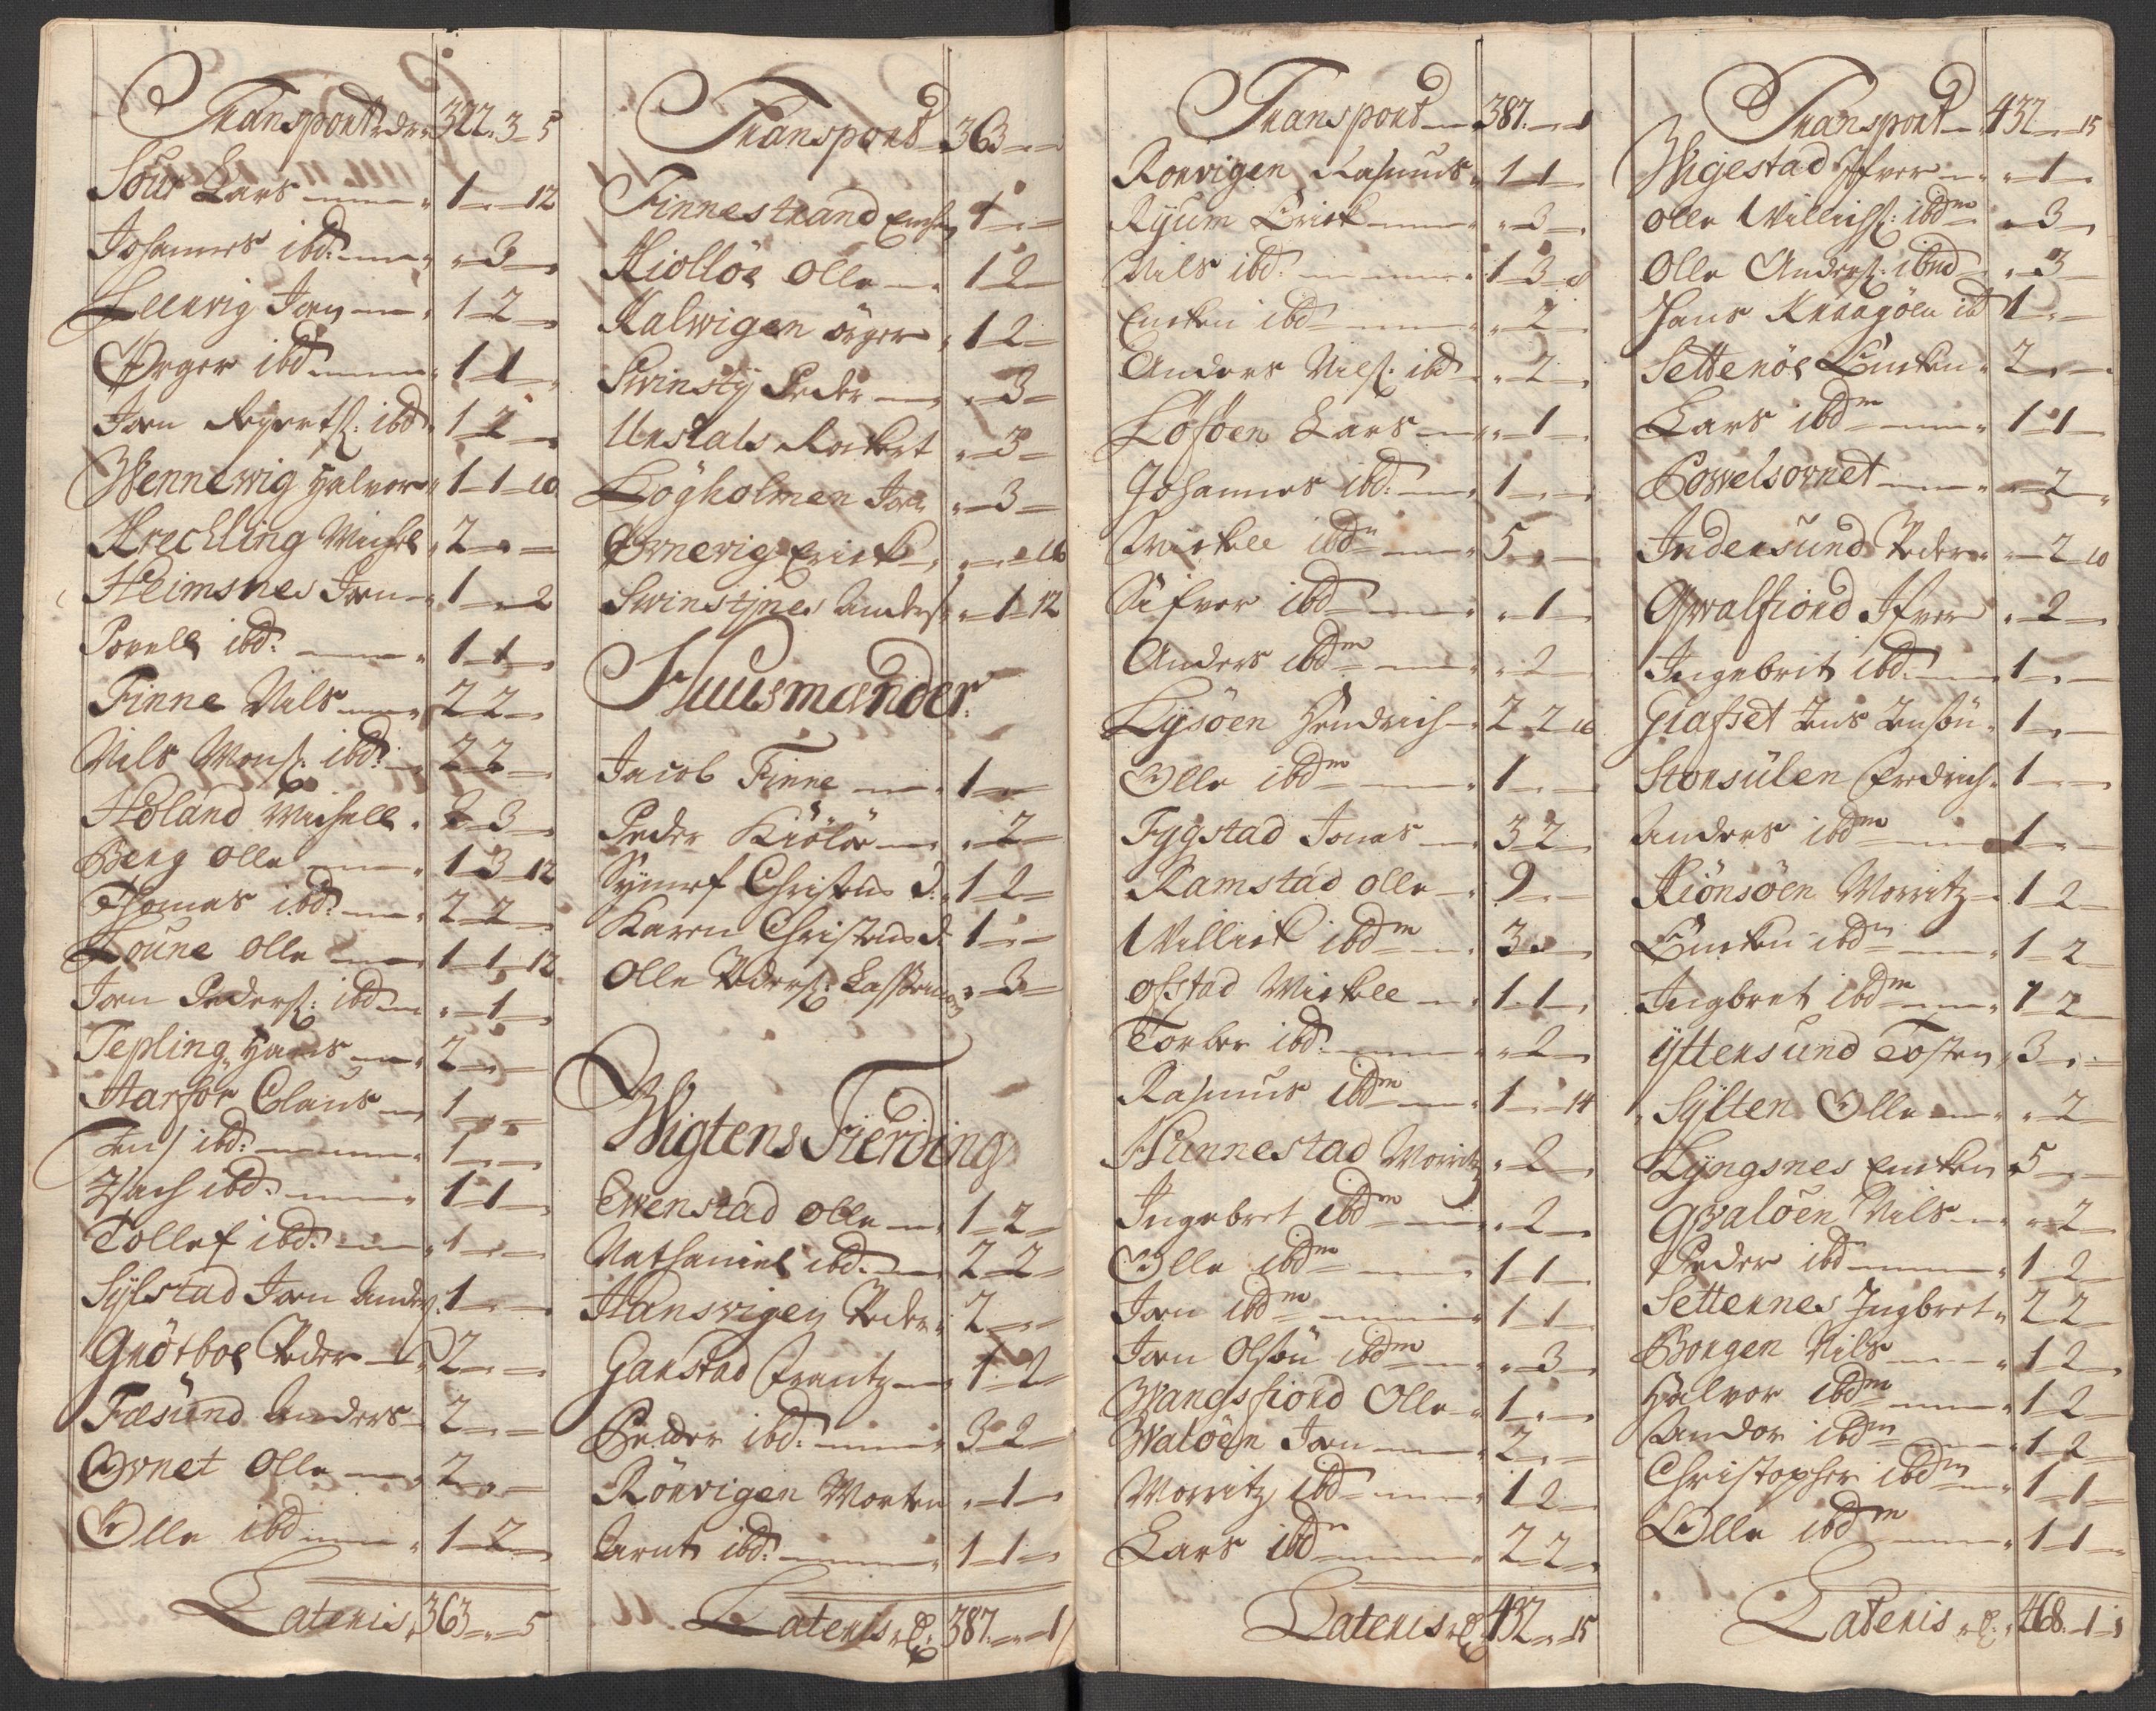 Transport rdr 322. 3 5
Sour Lars 1 - 12
Johannes ibd: - 3 -
Lleevig Joen 1 2 -
Ørger ibd 1 1 -
Joen Segertß: ibd 1 2 -
Wennewig Halvor 1 1 10
Krechling Michel 2 - -
Heimsnes Joen 1 - 2
Povell ibd: 1 1 -
Finne Nils 2 2 -
Nils Monß: ibd: 2 2 -
Høland Michell 3 -
Berg Olle 1 3 12
Thomas ibd: 2 2 -
Foune Olle 1 1 12
Joen Pederß: ibd - 1 -
Tepling Hans 2 - -
Harsor Claus 1 - -
Jens ibd: 1 - -
Zach ibd: 1 1 -
Tollef ibd: 1 - -
Sylstad Joen Anderß. 1 - -
Gnörboe Peder 2 - -
Fæsund Anders 2 - -
Ovnet Olle 2 - -
Olle ibd 1 2 -
Lateris 363 - 5
Transport 363 - -
Finnestrand 1 - -
Kiolløe Olle 1 2 -
Kalwigen örger 1 2 -
Swinsty Peder - 3 -
Unstals - 3 -
Løgholmen Joen - 3 -
Ørnevig Erick - - 16
Swinstynes Anders - 1 12
Huusmænder
Jacob Finne 1 - -
Peder Kiölöe - 2 -
Synnef Christens d: 1 2 -
Karen Christens d: 1 - -
Olle Pederß: - 3 -
Wigtens Fierding
Ewenstad Olle 1 2 -
Nathaniel ibd: 2 2 -
Hansvigen Peder 2 - -
Garstad Frantz 1 2 -
Peder ibd: 3 2 -
Rörvigen Morten - 1 -
Arnt ibd: 1 1 -
Lateris rd: 387. - 1
Transport 387. - 1
Rorvigen Rasmus 1 1 -
Ryum Erick - 3 -
Nils ibd: 1 3 8
Encken ibd - 2 -
Anders Nilß: ibd - 2 -
Løsöen Lars - 1 -
Johannes ibd: 1 - -
Mickell ibdm 5 - -
Sifver ibd - 1 -
Anders ibdm - 2 -
Lysöen Hendrich 2 2 16
Olle ibdm 1 - -
Fygstad Jonas 3 2 -
Ramstad Olle 9 - -
Willick ibdm 3 - -
Ofstad Mickell 1 1 -
Torber ibd: - 2 -
Rasmus ibdm 1 - 14
Hunnestad Morritz - 2 -
Ingebret ibdm - 2 -
Olle ibdm 1 1 -
Joen ibdm 1 1 -
Joen Olßön ibdm - 3 -
Wangsfiord Olle 1 - -
Waløen Joen 2 - -
Morritz ibd 1 2 -
Lars ibd 2 2 -
Lateris rd 432 - 15
Transport 432 - 15
Wigestad Ifver - 1 -
Olle Willichß: ibdm - 3 -
Olle Anderß: ibnd - 3 -
Hans Kraagöen ibd 1 - -
Settenöe Encken 2 - -
Lars ibdm 1 1 -
Powelsovnet - 2 -
Indersund Peder - 2 10
Qwalfiord Ifver - 2 -
Ingebrit ibd: 1 - -
Giafset Jens Jensön 1 - -
Storsülen Fredrich 1 - -
Anders ibdm 1 - -
Kiönsöen Morritz 1 2 -
Encken ibdm 1 2 -
Ingbret ibdm 1 2 -
Yttersund Tosten 3 - -
Sylten Olle - 2 -
Lyngsnes Encken 5 - -
Qwaløen Nils - 2 -
Peder ibd 1 2 -
Settennes Ingbret 2 2 -
Borgen Nils 1 2 -
Halvor ibdm 1 2 -
Andor ibdm 1 2 -
Christopher ibdm 1 1 -
Olle ibdm 1 1 -
Lateris rd: 468. 1 1